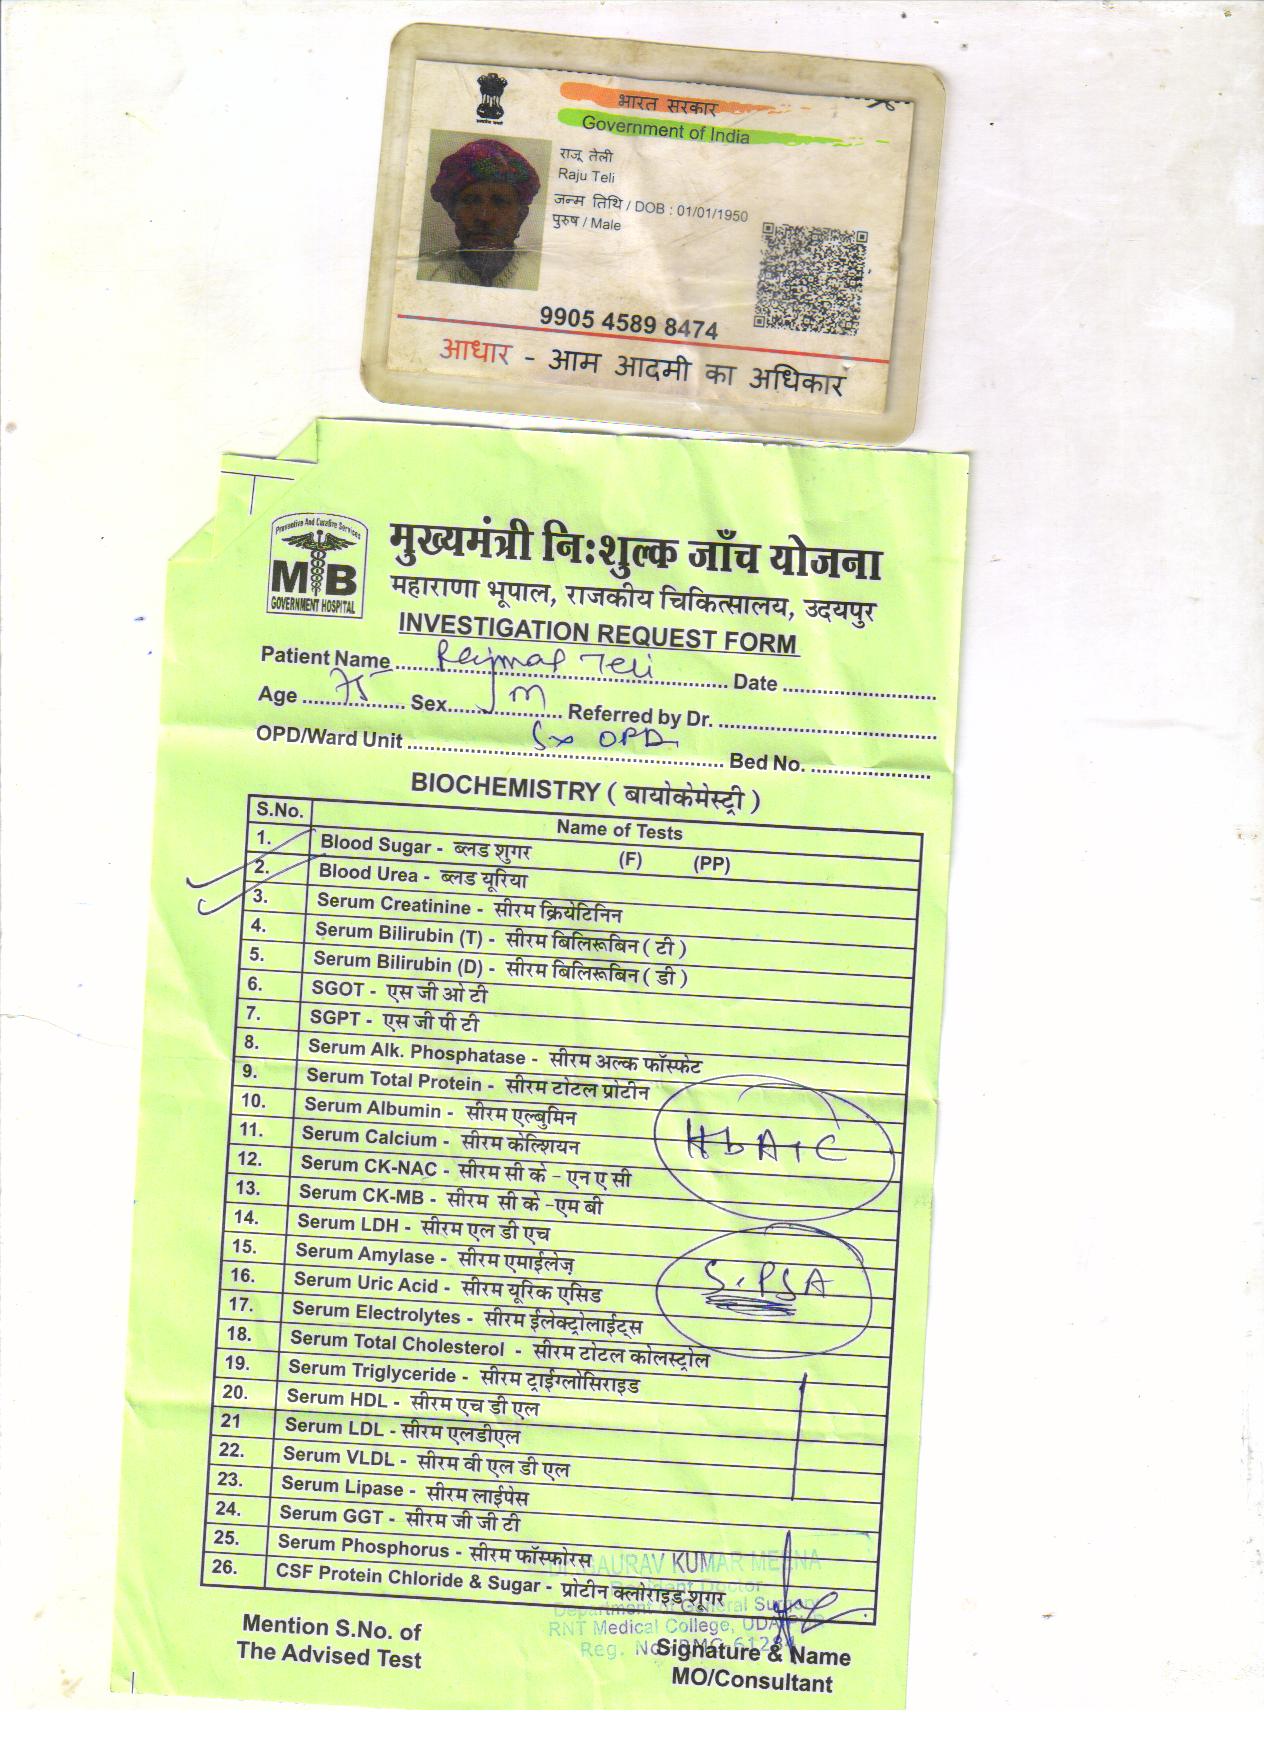 भारत सरकार
Government of India
राजू तेली
Raju Teli
जन्म तिथि / DOB : 01/01/1950
पुरुष / Male
9905 4589 8474
आधार - आम आदमी का अधिकार
Preventive And Curative Services
MB
GOVERNMENT HOSPITAL
मुख्यमंत्री नि:शुल्क जाँच योजना
महाराणा भूपाल, राजकीय चिकित्सालय, उदयपुर
INVESTIGATION REQUEST FORM
Patient Name Rajmal Teli Date
Age 75 Sex M Referred by Dr.
OPD/Ward Unit Sx OPD Bed No.
BIOCHEMISTRY ( बायोकेमेस्ट्री )
S.No. Name of Tests
1. Blood Sugar - ब्लड शुगर (F) (PP)
2. Blood Urea - ब्लड यूरिया
3. Serum Creatinine - सीरम क्रियेटिनिन
4. Serum Bilirubin (T) - सीरम बिलिरूबिन ( टी )
5. Serum Bilirubin (D) - सीरम बिलिरूबिन ( डी )
6. SGOT - एस जी ओ टी
7. SGPT - एस जी पी टी
8. Serum Alk. Phosphatase - सीरम अल्क फॉस्फेट
9. Serum Total Protein - सीरम टोटल प्रोटीन
10. Serum Albumin - सीरम एल्बुमिन
11. Serum Calcium - सीरम केल्शियन
HbA1C
12. Serum CK-NAC - सीरम सी के - एन ए सी
13. Serum CK-MB - सीरम सी के -एम बी
14. Serum LDH - सीरम एल डी एच
15. Serum Amylase - सीरम एमाईलेज़
S.PSA
16. Serum Uric Acid - सीरम यूरिक एसिड
17. Serum Electrolytes - सीरम ईलेक्ट्रोलाईट्स
18. Serum Total Cholesterol - सीरम टोटल कोलस्ट्रोल
19. Serum Triglyceride - सीरम ट्राईग्लोसिराइड
20. Serum HDL - सीरम एच डी एल
21 Serum LDL - सीरम एलडीएल
22. Serum VLDL - सीरम वी एल डी एल
23. Serum Lipase - सीरम लाईपेस
24. Serum GGT - सीरम जी जी टी
25. Serum Phosphorus - सीरम फॉस्फोरस
26. CSF Protein Chloride & Sugar - प्रोटीन क्लोराइड शूगर
GAURAV KUMAR MEENA
Resident Doctor
Department of General Surgery
RNT Medical College, UDAIPUR
Reg. No.
Mention S.No. of
The Advised Test
Signature & Name
MO/Consultant